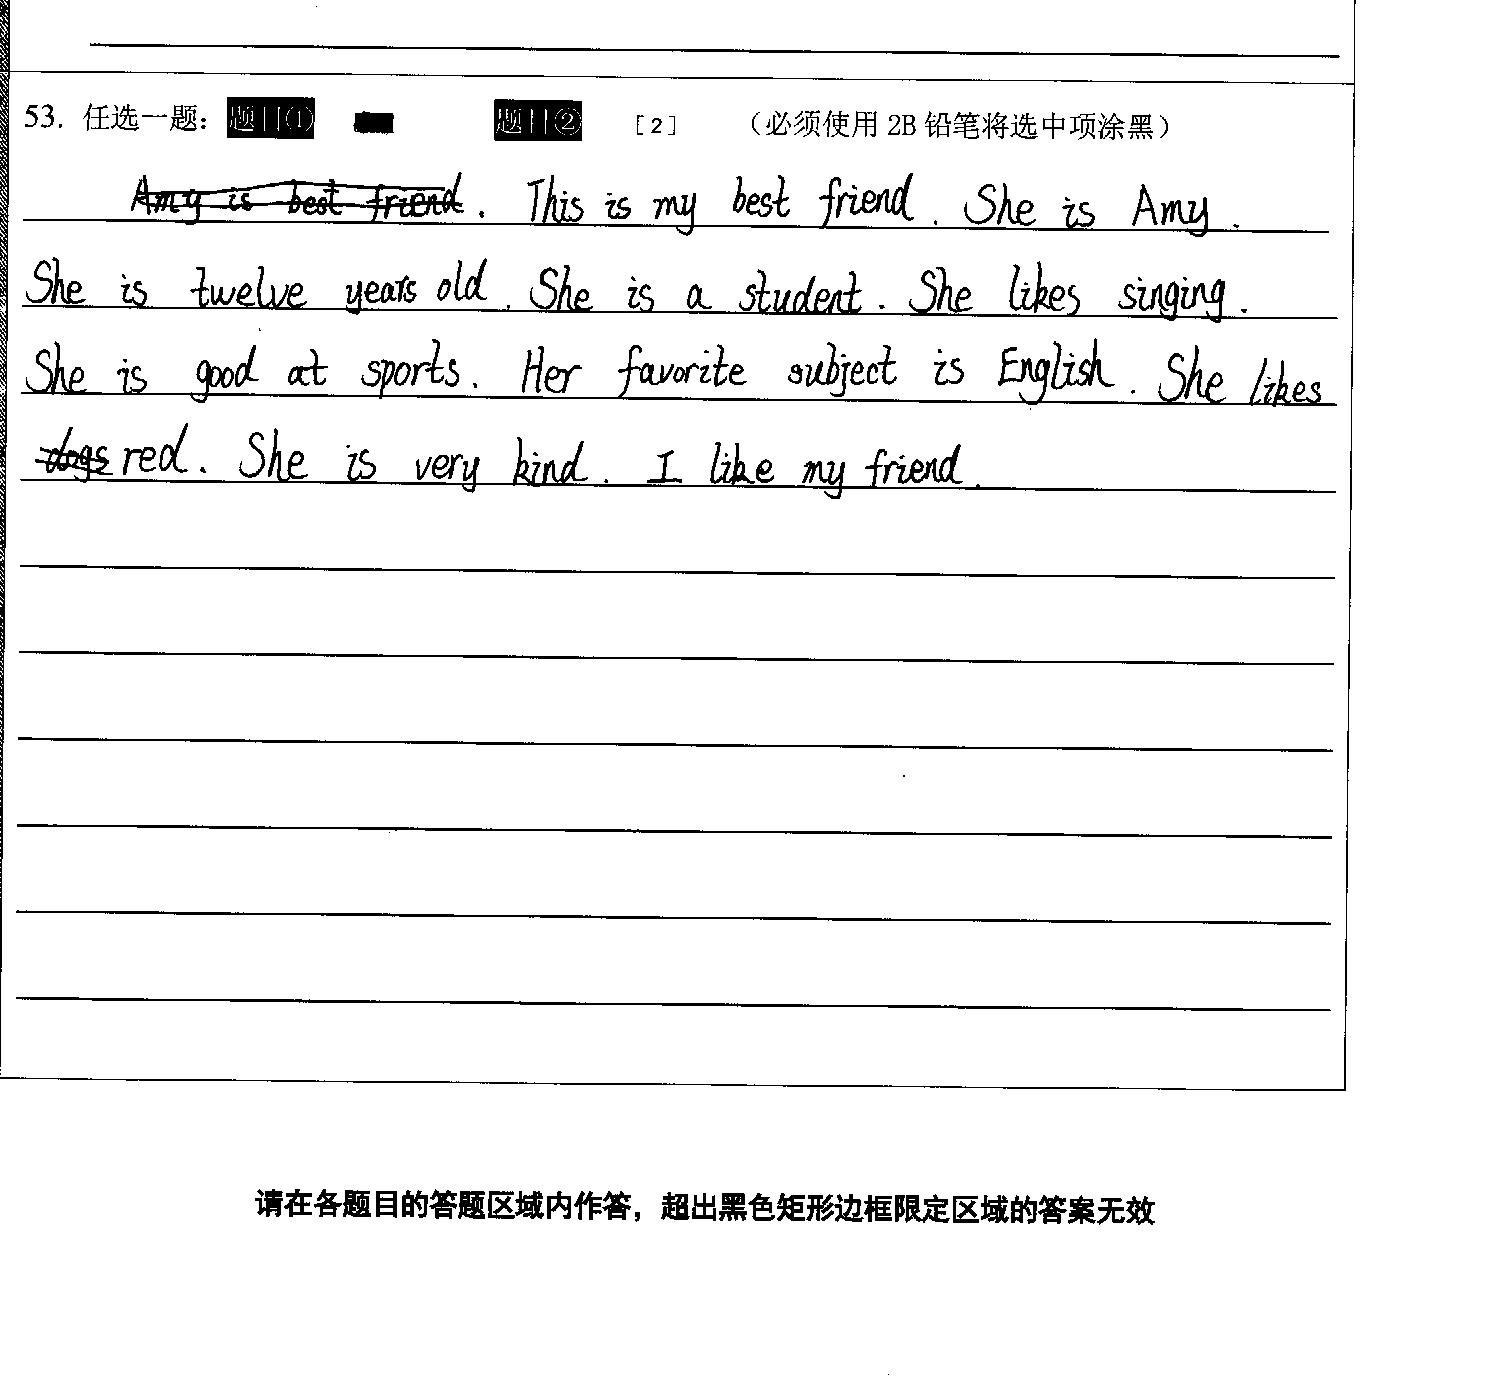 53. 任选一题：题目① 题目② [2] （必须使用 2B 铅笔将选中项涂黑）
Amy is best friend. This is my best friend. She is Amy.
She is twelve years old. She is a student. She likes singing.
She is good at sports. Her favorite subject is English. She likes
dogs red. She is very kind. I like my friend.
请在各题目的答题区域内作答，超出黑色矩形边框限定区域的答案无效